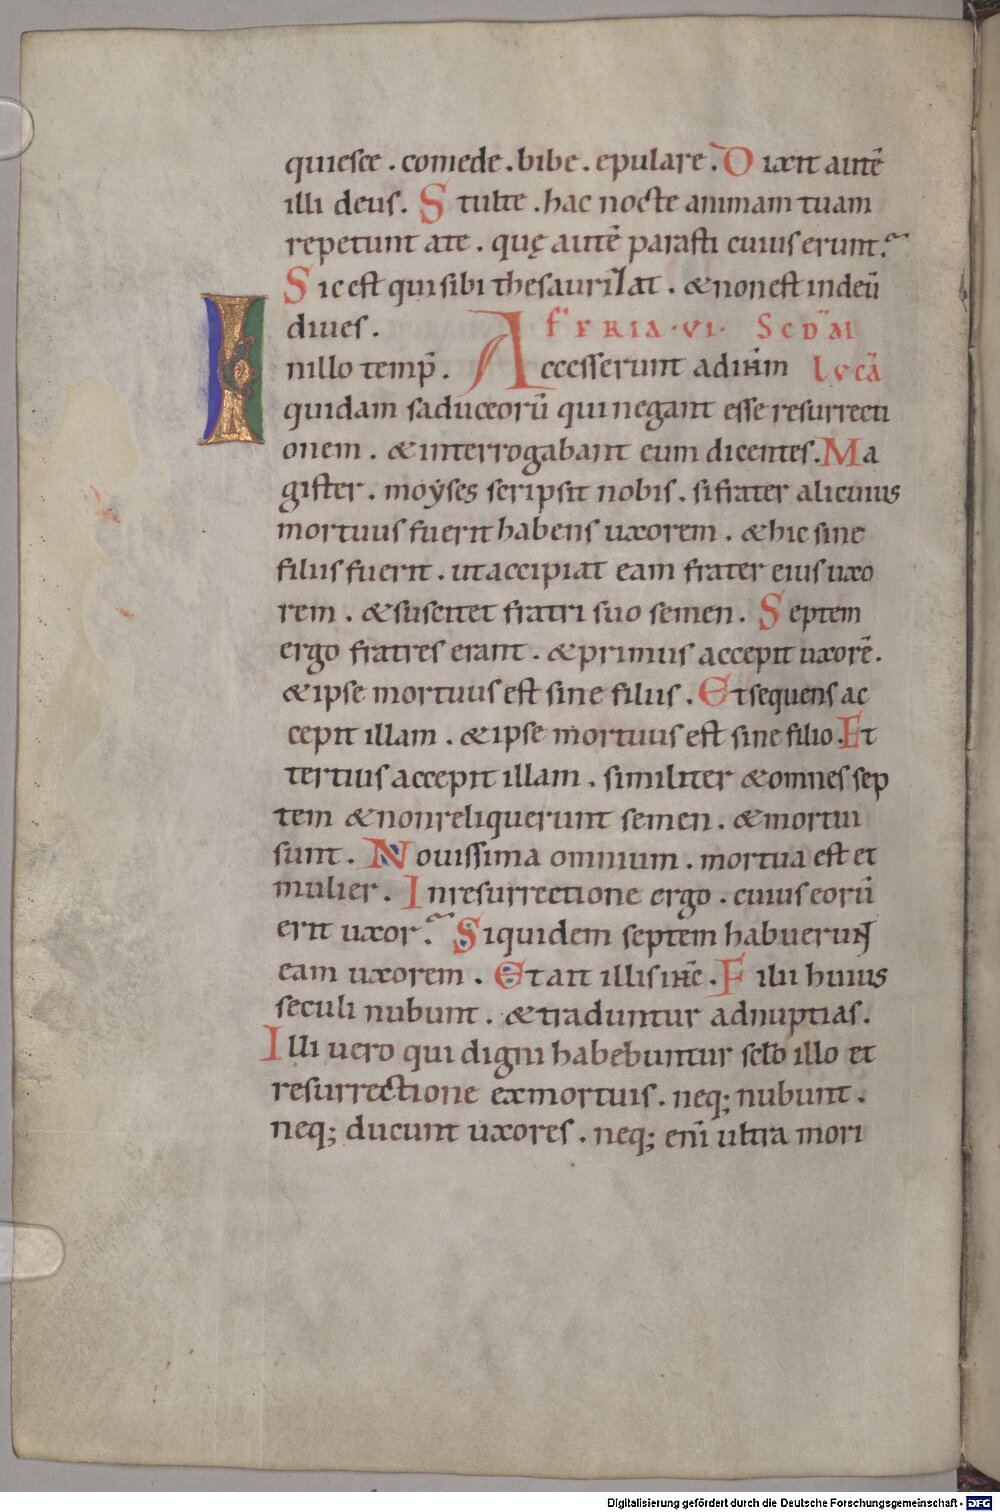 quiesce . comede . bibe . epulare . Dixit autē
illi deus . Stulte . hac nocte animam tuam
repetunt a te . quę autē parasti cuius erunt?
Sic est qui sibi thesaurizat . & non est in deū
diues . FERIA · VI · SCDM̄
In illo temp̄ . Accesserunt ad ih̄m LVCĀ
quidam saduceorū qui negant esse resurrecti
onem . & interrogabant eum dicentes . Ma
gister . moyses scripsit nobis . si frater alicuius
mortuus fuerit habens uxorem . & hic sine
filiis fuerit . ut accipiat eam frater eius uxo
rem . & suscitet fratri suo semen . Septem
ergo fratres erant . & primus accepit uxorē .
& ipse mortuus est sine filiis . Et sequens ac
cepit illam . & ipse mortuus est sine filio . Et
tertius accepit illam . similiter & omnes sep
tem & non reliquerunt semen . & mortui
sunt . Nouissima omnium . mortua est et
mulier . In resurrectione ergo . cuius eorū
erit uxor? Siquidem septem habuerunt
eam uxorem . Et ait illis ih̄c . Filii huius
seculi nubunt . & traduntur ad nuptias .
Illi uero qui digni habebuntur sclo illo et
resurrectione ex mortuis . neq; nubunt .
neq; ducunt uxores . neq; eni̅ ultra mori
Digitalisierung gefördert durch die Deutsche Forschungsgemeinschaft - DFG